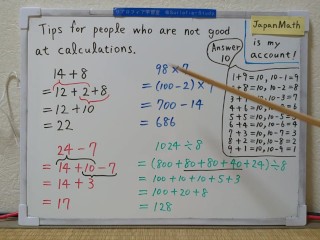 Tips for people who are not good
at calculations.
Answer
10
JapanMath
is my
account!
14 + 8
= 12 + 2 + 8
= 12 + 10
= 22
98 × 7
= (100 - 2) × 7
= 700 - 14
= 686
1 + 9 = 10, 10 - 1 = 9
+ 8 = 10, 10 - 2 = 8
5 + 5 = 10, 10 - 5 = 5
6 + 4 = 10, 10 - 6 = 4
7 + 3 = 10, 10 - 7 = 3
8 + 2 = 10, 10 - 8 = 2
9 + 1 = 10, 10 - 9 = 1
24 - 7
= 14 + 10 - 7
= 14 + 3
= 17
1024 ÷ 8
= (800 + 80 + 80 + 40 + 24) ÷ 8
= 100 + 10 + 10 + 5 + 3
= 100 + 20 + 8
= 128